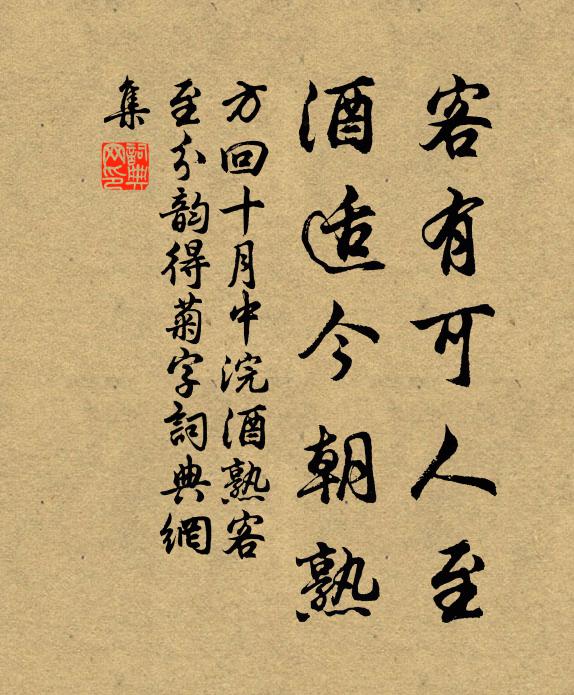 客有可人至
酒适今朝熟
方回十月中浣酒熟客
至分韵得菊字詞典網
集
詞典
网印